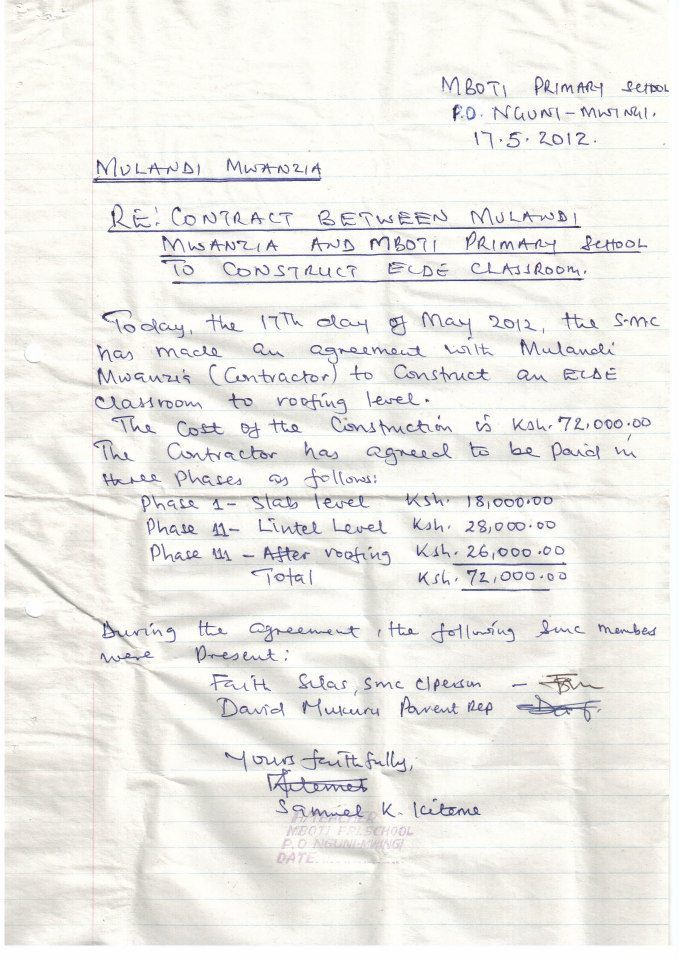 MBOTI PRIMARY SCHOOL
P.O. NGUNI-MWINGI.
17.5.2012.
MULANDI MWANZIA
RE: CONTRACT BETWEEN MULANDI
MWANZIA AND MBOTI PRIMARY SCHOOL
TO CONSTRUCT ECDE CLASSROOM.
Today, the 17Th day of May 2012, the SMC
has made an agreement with Mulandi
Mwanzia (Contractor) to Construct an ECDE
Classroom to roofing level.
The Cost of the Construction is Ksh. 72,000.00
The Contractor has agreed to be paid in
three Phases as follows:
Phase 1 - Slab level Ksh. 18,000.00
Phase 11 - Lintel Level Ksh. 28,000.00
Phase 111 - After roofing Ksh. 26,000.00
Total Ksh. 72,000.00
During the agreement, the following Smc members
were Present:
Faith Silas, Smc C/person -
David Mukuru Parent Rep
Yours faithfully,
Samuel K. Kiteme
H/TEACHER
MBOTI PRI SCHOOL
P.O NGUNI-MWINGI
DATE